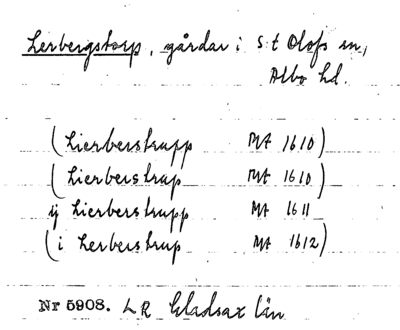 Lerbergstorp, gårdar i S:t Olofs sn,
Albo hd.
(Lierberstrupp MA 1610)
(Lierberstrup MA 1610)
ij Lierberstrupp MA 1611
(i Lerberstrup MA 1612)
Nr 5908. LR Gladsax län